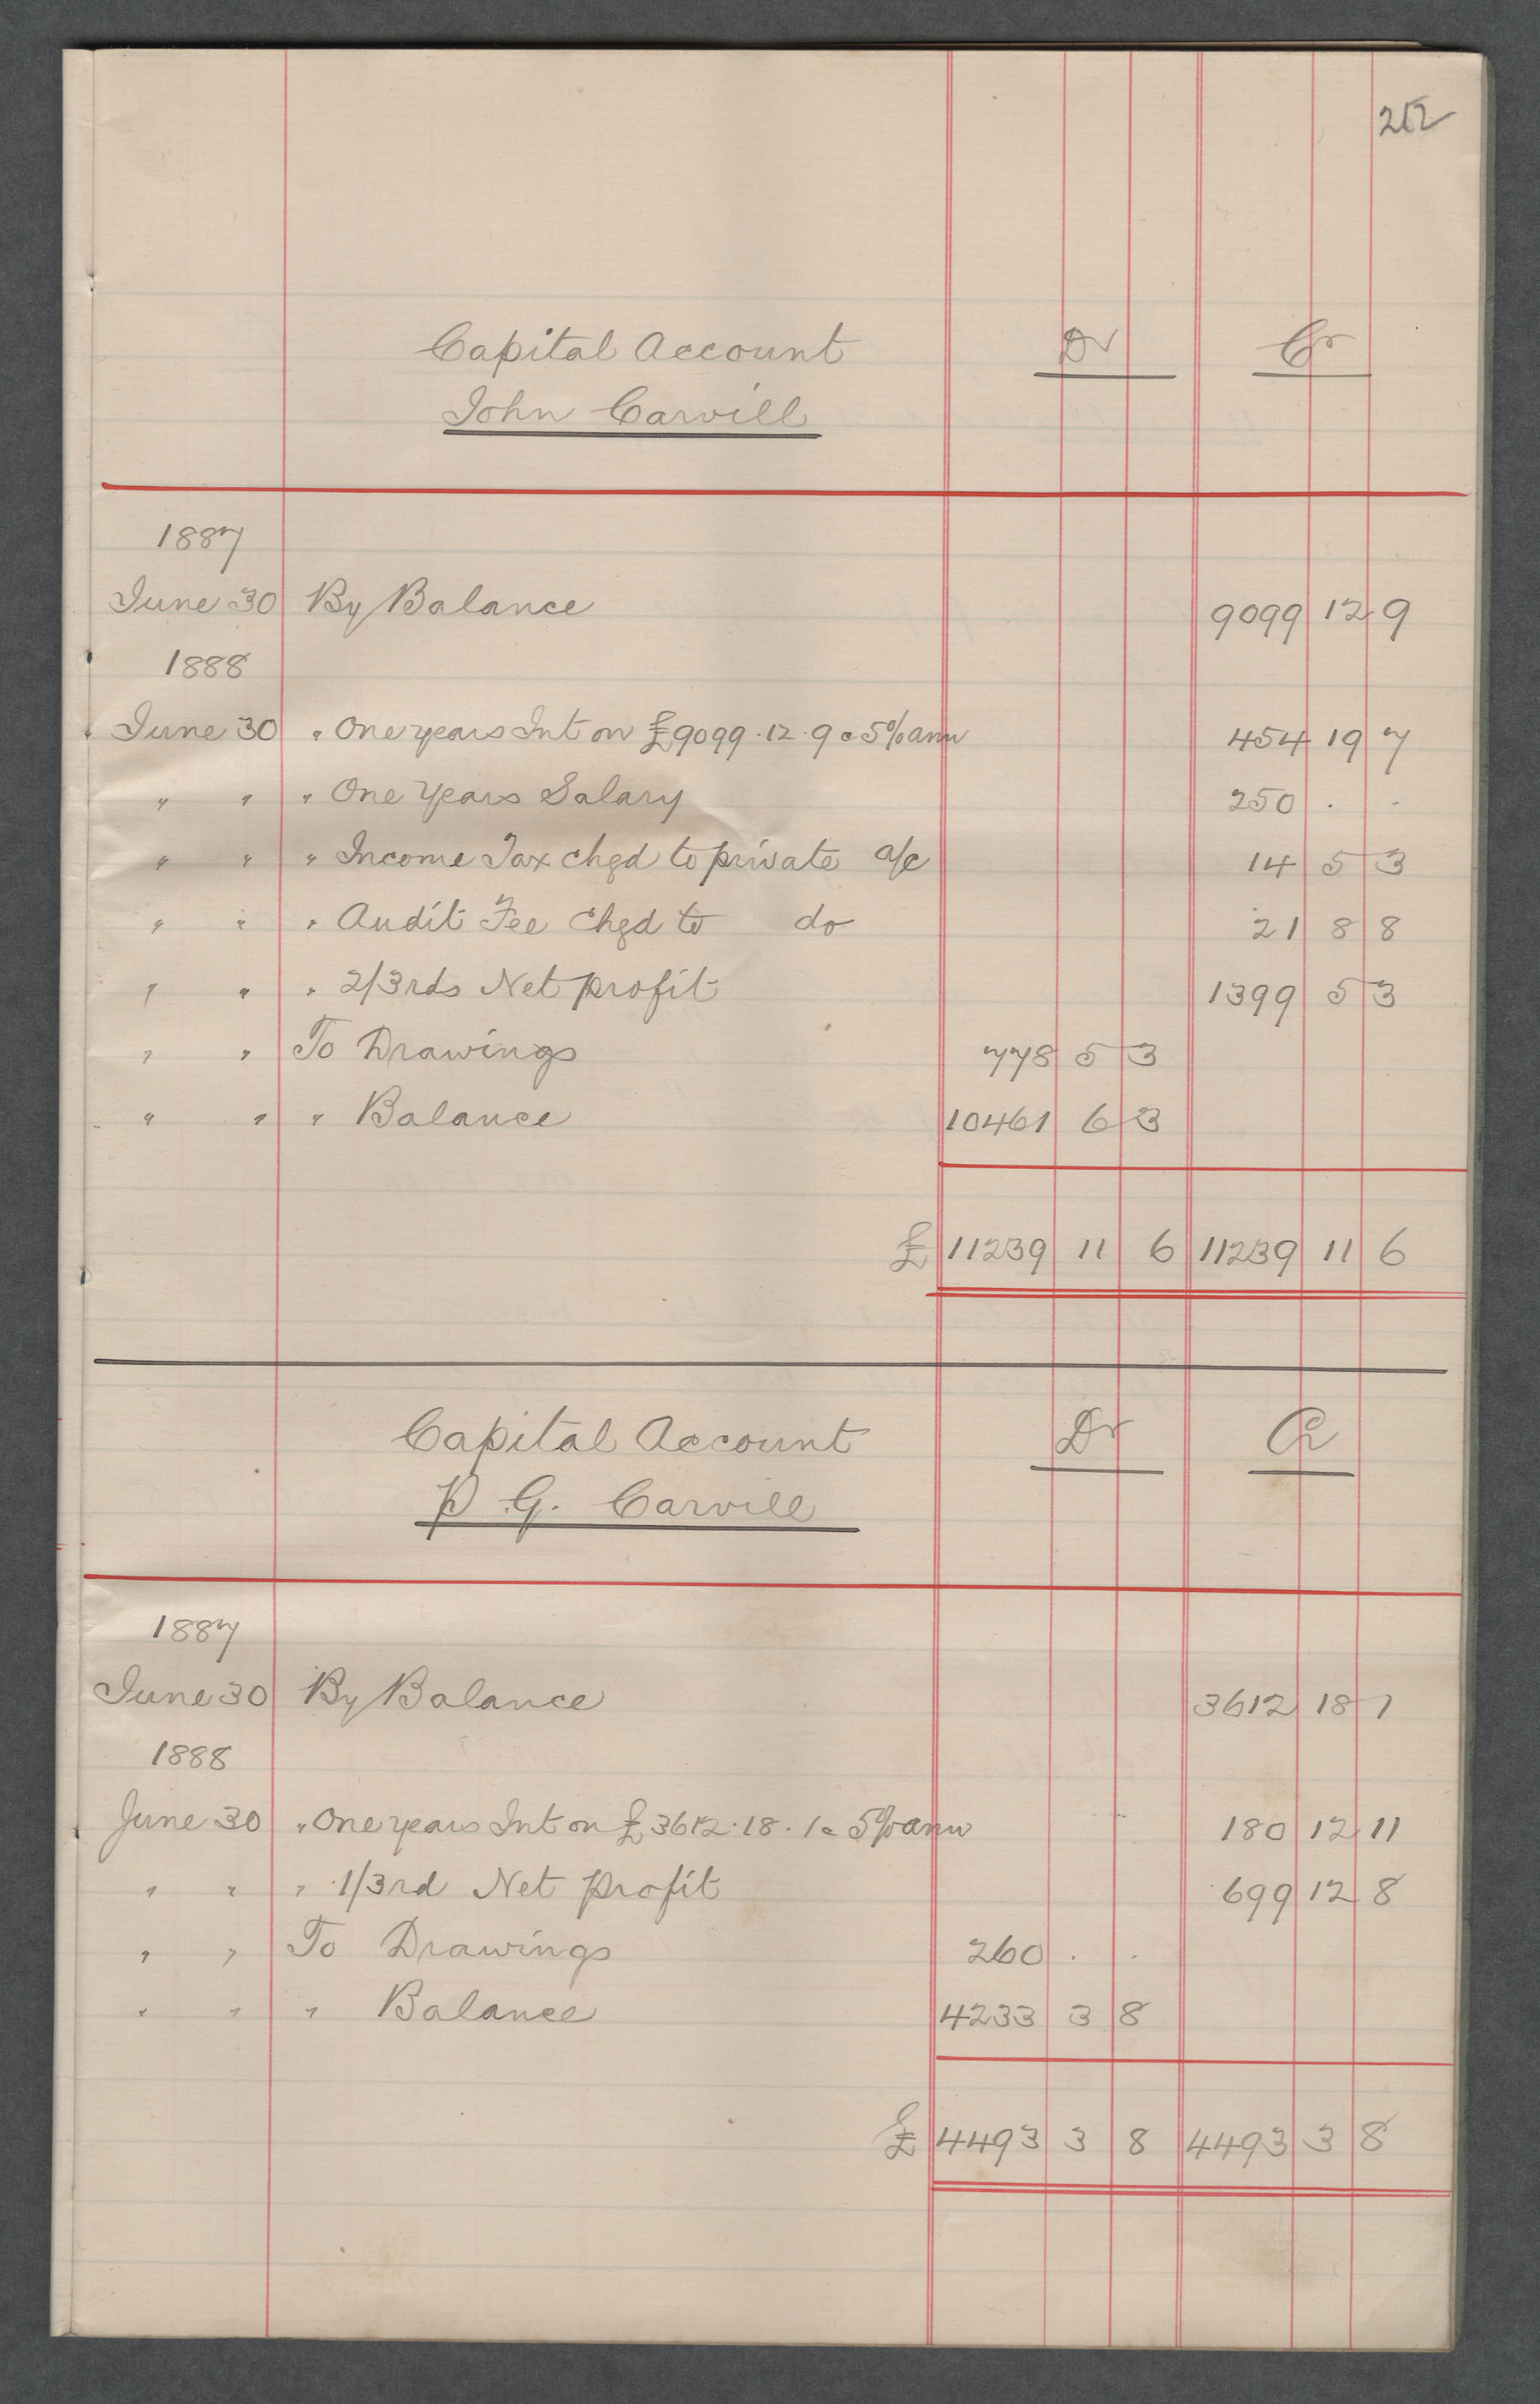 252
Capital Account Dr Cr
John Carvill
1887
June 30 By Balance 9099 12 9
1888
June 30 " One years Int on £9099.12.9 @ 5% ann 454 19 7
" " " One Years Salary 250 . .
" " " Income Tax chgd to private a/c 14 5 3
" " " Audit Fee chgd to do 21 8 8
" " " 2/3rds Net profit 1399 5 3
" " To Drawings 778 5 3
" " " Balance 10461 6 3
£ 11239 11 6 11239 11 6
Capital Account Dr Cr
P. G. Carvill
1887
June 30 By Balance 3612 18 1
1888
June 30 " One years Int on £3612.18.1 @ 5% ann 180 12 11
" " " 1/3rd Net Profit 699 12 8
" " To Drawings 260 . .
" " " Balance 4233 3 8
£ 4493 3 8 4493 3 8